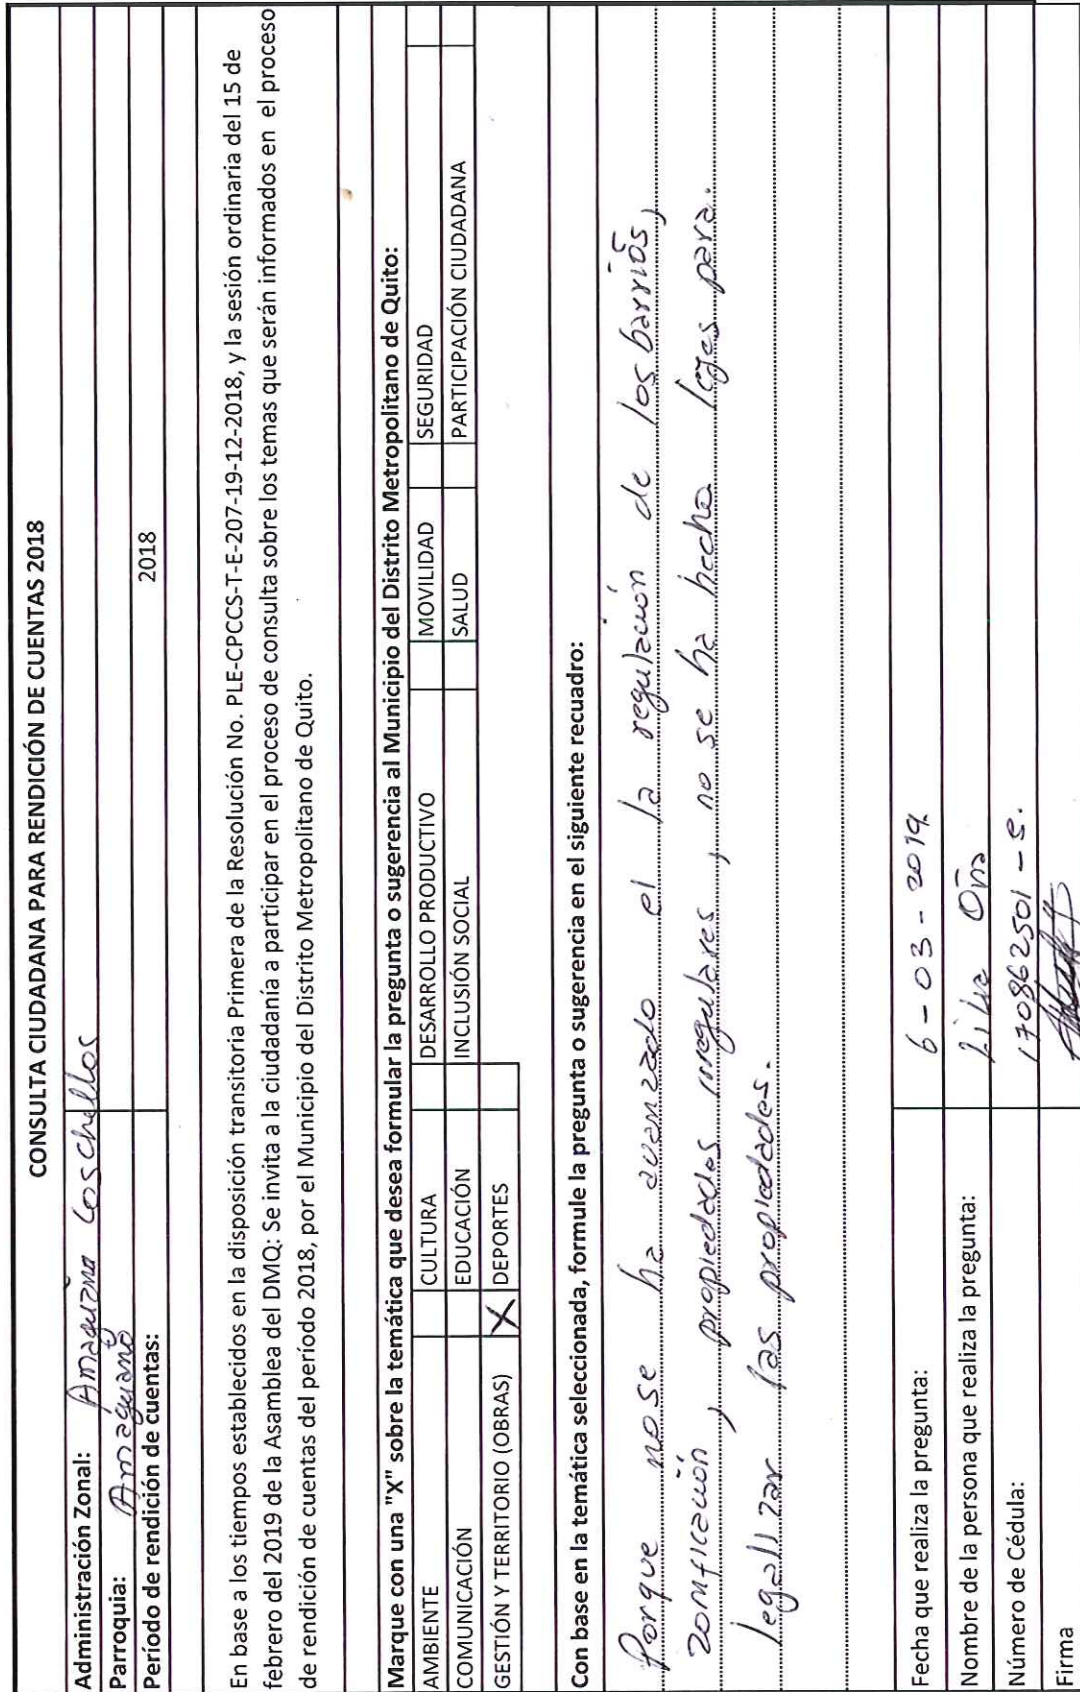 CONSULTA CIUDADANA PARA RENDICIÓN DE CUENTAS 2018
Administración Zonal: Amaguaña Los Chillos
Parroquia: Amaguaña
Período de rendición de cuentas: 2018
En base a los tiempos establecidos en la disposición transitoria Primera de la Resolución No. PLE-CPCCS-T-E-207-19-12-2018, y la sesión ordinaria del 15 de
febrero del 2019 de la Asamblea del DMQ: Se invita a la ciudadanía a participar en el proceso de consulta sobre los temas que serán informados en el proceso
de rendición de cuentas del período 2018, por el Municipio del Distrito Metropolitano de Quito.
Marque con una "X" sobre la temática que desea formular la pregunta o sugerencia al Municipio del Distrito Metropolitano de Quito:
AMBIENTE CULTURA DESARROLLO PRODUCTIVO MOVILIDAD SEGURIDAD
COMUNICACIÓN EDUCACIÓN INCLUSIÓN SOCIAL SALUD PARTICIPACIÓN CIUDADANA
GESTIÓN Y TERRITORIO (OBRAS) X DEPORTES
Con base en la temática seleccionada, formule la pregunta o sugerencia en el siguiente recuadro:
Porque no se ha avanzado el la regulación de los barrios,
zonificación, propiedades irregulares, no se ha hecho leyes para.
legalizar las propiedades.
Fecha que realiza la pregunta: 6-03-2019.
Nombre de la persona que realiza la pregunta: Lilia Oña
Número de Cédula: 170862501-
Firma